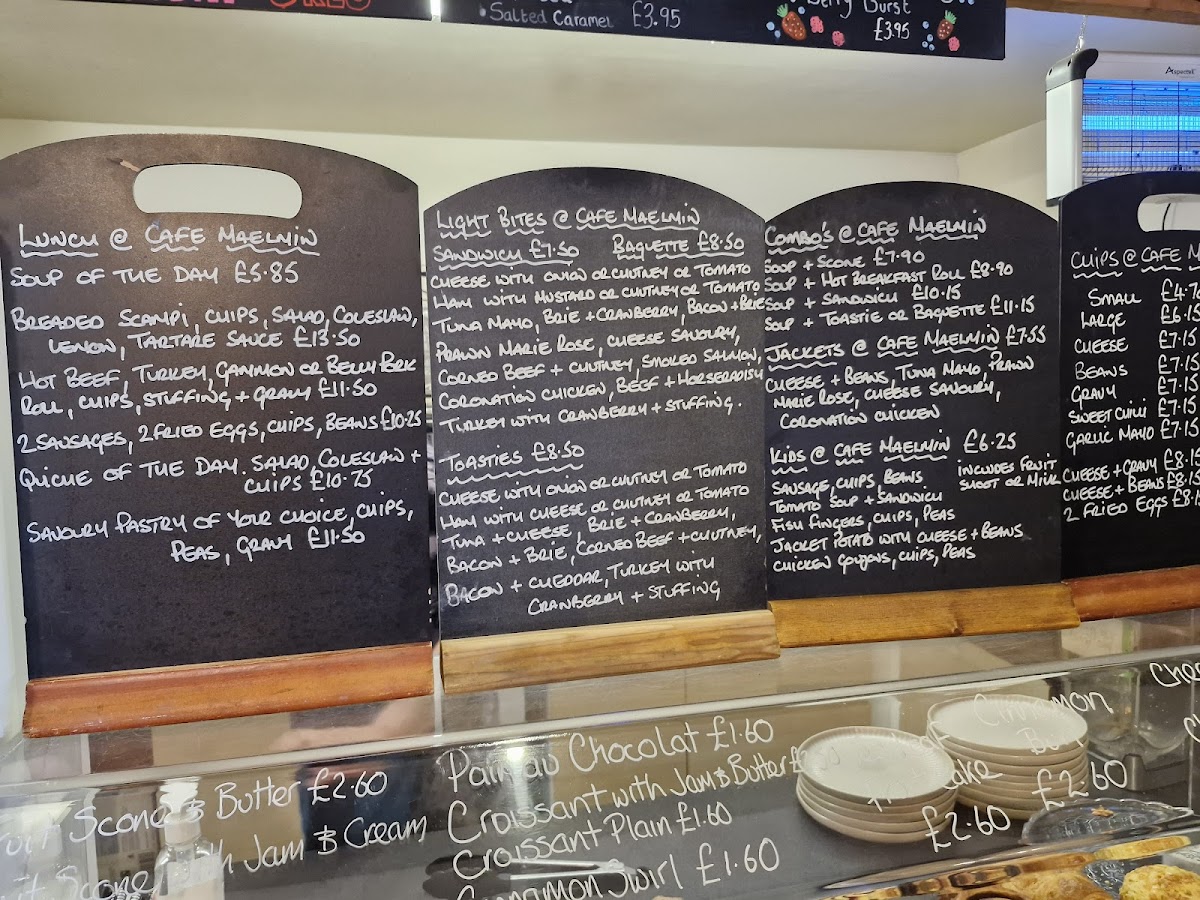 Salted Caramel £3.95
Berry Burst
£3.95
Aspenhill
LUNCH @ CAFE MAELMIN
SOUP OF THE DAY £5.85
BREADED SCAMPI, CHIPS, SALAD, COLESLAW,
LEMON, TARTARE SAUCE £13.50
HOT BEEF, TURKEY, GAMMON OR BELLY PORK
ROLL, CHIPS, STUFFING + GRAVY £11.50
2 SAUSAGES, 2 FRIED EGGS, CHIPS, BEANS £10.25
QUICHE OF THE DAY. SALAD, COLESLAW +
CHIPS £10.75
SAVOURY PASTRY OF YOUR CHOICE, CHIPS,
PEAS, GRAVY £11.50
LIGHT BITES @ CAFE MAELMIN
SANDWICH £7.50 BAGUETTE £8.50
CHEESE WITH ONION OR CHUTNEY OR TOMATO
HAM WITH MUSTARD OR CHUTNEY OR TOMATO
TUNA MAYO, BRIE + CRANBERRY, BACON + BRIE
PRAWN MARIE ROSE, CHEESE SAVOURY,
CORNED BEEF + CHUTNEY, SMOKED SALMON,
CORONATION CHICKEN, BEEF + HORSERADISH
TURKEY WITH CRANBERRY + STUFFING.
TOASTIES £8.50
CHEESE WITH ONION OR CHUTNEY OR TOMATO
HAM WITH CHEESE OR CHUTNEY OR TOMATO
TUNA + CHEESE, BRIE + CRANBERRY,
BACON + BRIE, CORNED BEEF + CHUTNEY,
BACON + CHEDDAR, TURKEY WITH
CRANBERRY + STUFFING
COMBO'S @ CAFE MAELMIN
SOUP + SCONE £7.90
SOUP + HOT BREAKFAST ROLL £8.90
SOUP + SANDWICH £10.15
SOUP + TOASTIE OR BAGUETTE £11.15
JACKETS @ CAFE MAELMIN £7.55
CHEESE + BEANS, TUNA MAYO, PRAWN
MARIE ROSE, CHEESE SAVOURY,
CORONATION CHICKEN
KIDS @ CAFE MAELMIN £6.25
SAUSAGE, CHIPS, BEANS
INCLUDES FRUIT
SHOOT OR MILK
TOMATO SOUP + SANDWICH
FISH FINGERS, CHIPS, PEAS
JACKET POTATO WITH CHEESE + BEANS
CHICKEN GOUJONS, CHIPS, PEAS
CHIPS @ CAFE M
SMALL £4.70
LARGE £6.15
CHEESE £7.15
BEANS £7.15
GRAVY £7.15
SWEET CHILLI £7.15
GARLIC MAYO £7.15
CHEESE + GRAVY £8.15
CHEESE + BEANS £8.15
2 FRIED EGGS £8.1
Scone & Butter £2.60
Scone with Jam & Cream
Pain au Chocolat £1.60
Croissant with Jam & Butter £
Croissant Plain £1.60
Cinnamon Swirl £1.60
£2.60
Cinnamon
Bun
£2.60